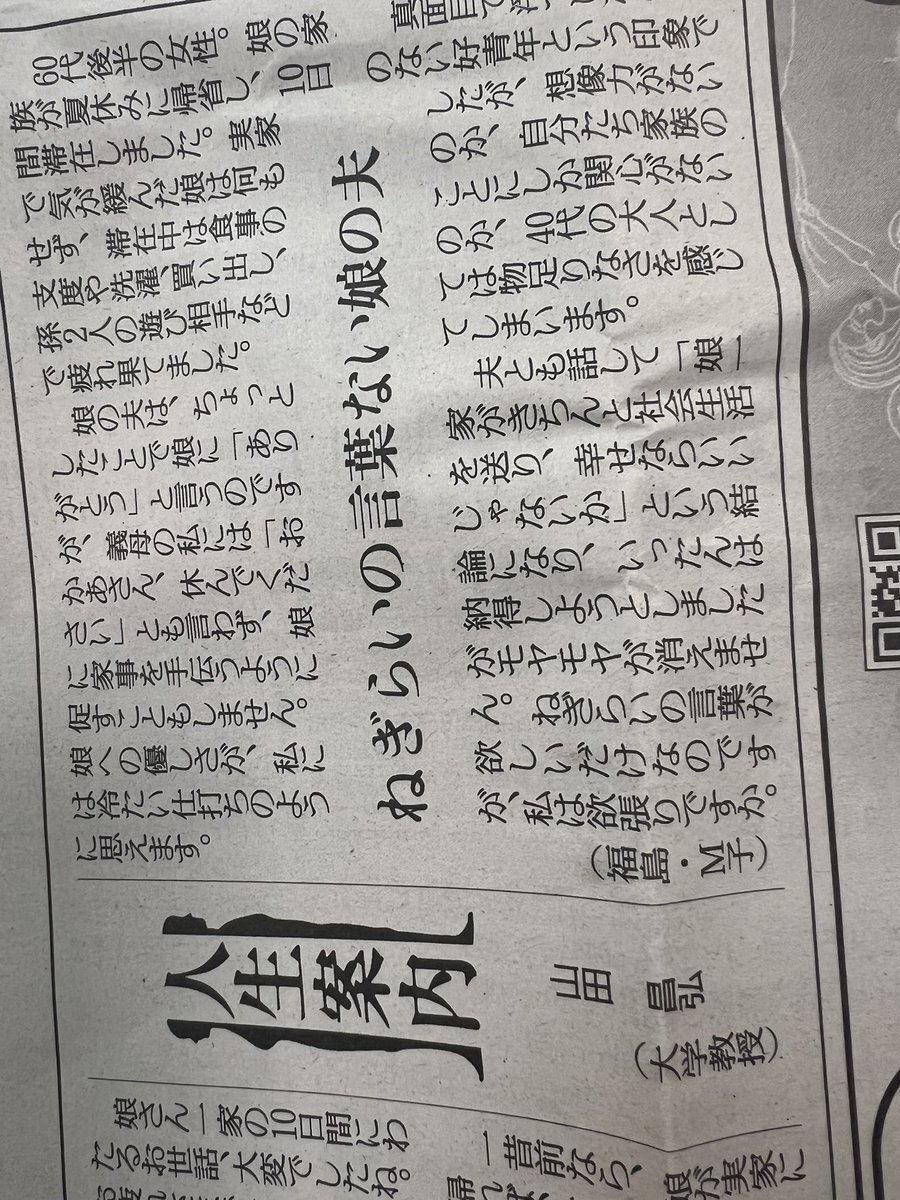 ねぎらいの言葉ない娘の夫
60代後半の女性。娘の家
族が夏休みに帰省し、10日
間滞在しました。実家
で気が緩んだ娘は何も
せず、滞在中は食事の
支度や洗濯、買い出し、
孫2人の遊び相手など
で疲れ果てました。
娘の夫は、ちょっと
したことで娘に「あり
がとう」と言うのです
が、義母の私には「お
かあさん、休んでくだ
さい」とも言わず、娘
に家事を手伝うように
促すこともしません。
娘への優しさが、私に
は冷たい仕打ちのよう
に思えます。
真面目で
のない好青年という印象で
したが、想像力がない
のか、自分たち家族の
ことにしか関心がない
のか、40代の大人とし
ては物足りなさを感じ
てしまいます。
夫とも話して「娘一
家がきちんと社会生活
を送り、幸せならいい
じゃないか」という結
論になり、いったんは
納得しようとしました
がモヤモヤが消えませ
ん。ねぎらいの言葉が
欲しいだけなのです
が、私は欲張りですか。
(福島・M子)
人生案内
山田 昌弘
(大学教授)
娘さん一家の10日間にわ
たるお世話、大変でしたね。
一昔前なら、
娘が実家に